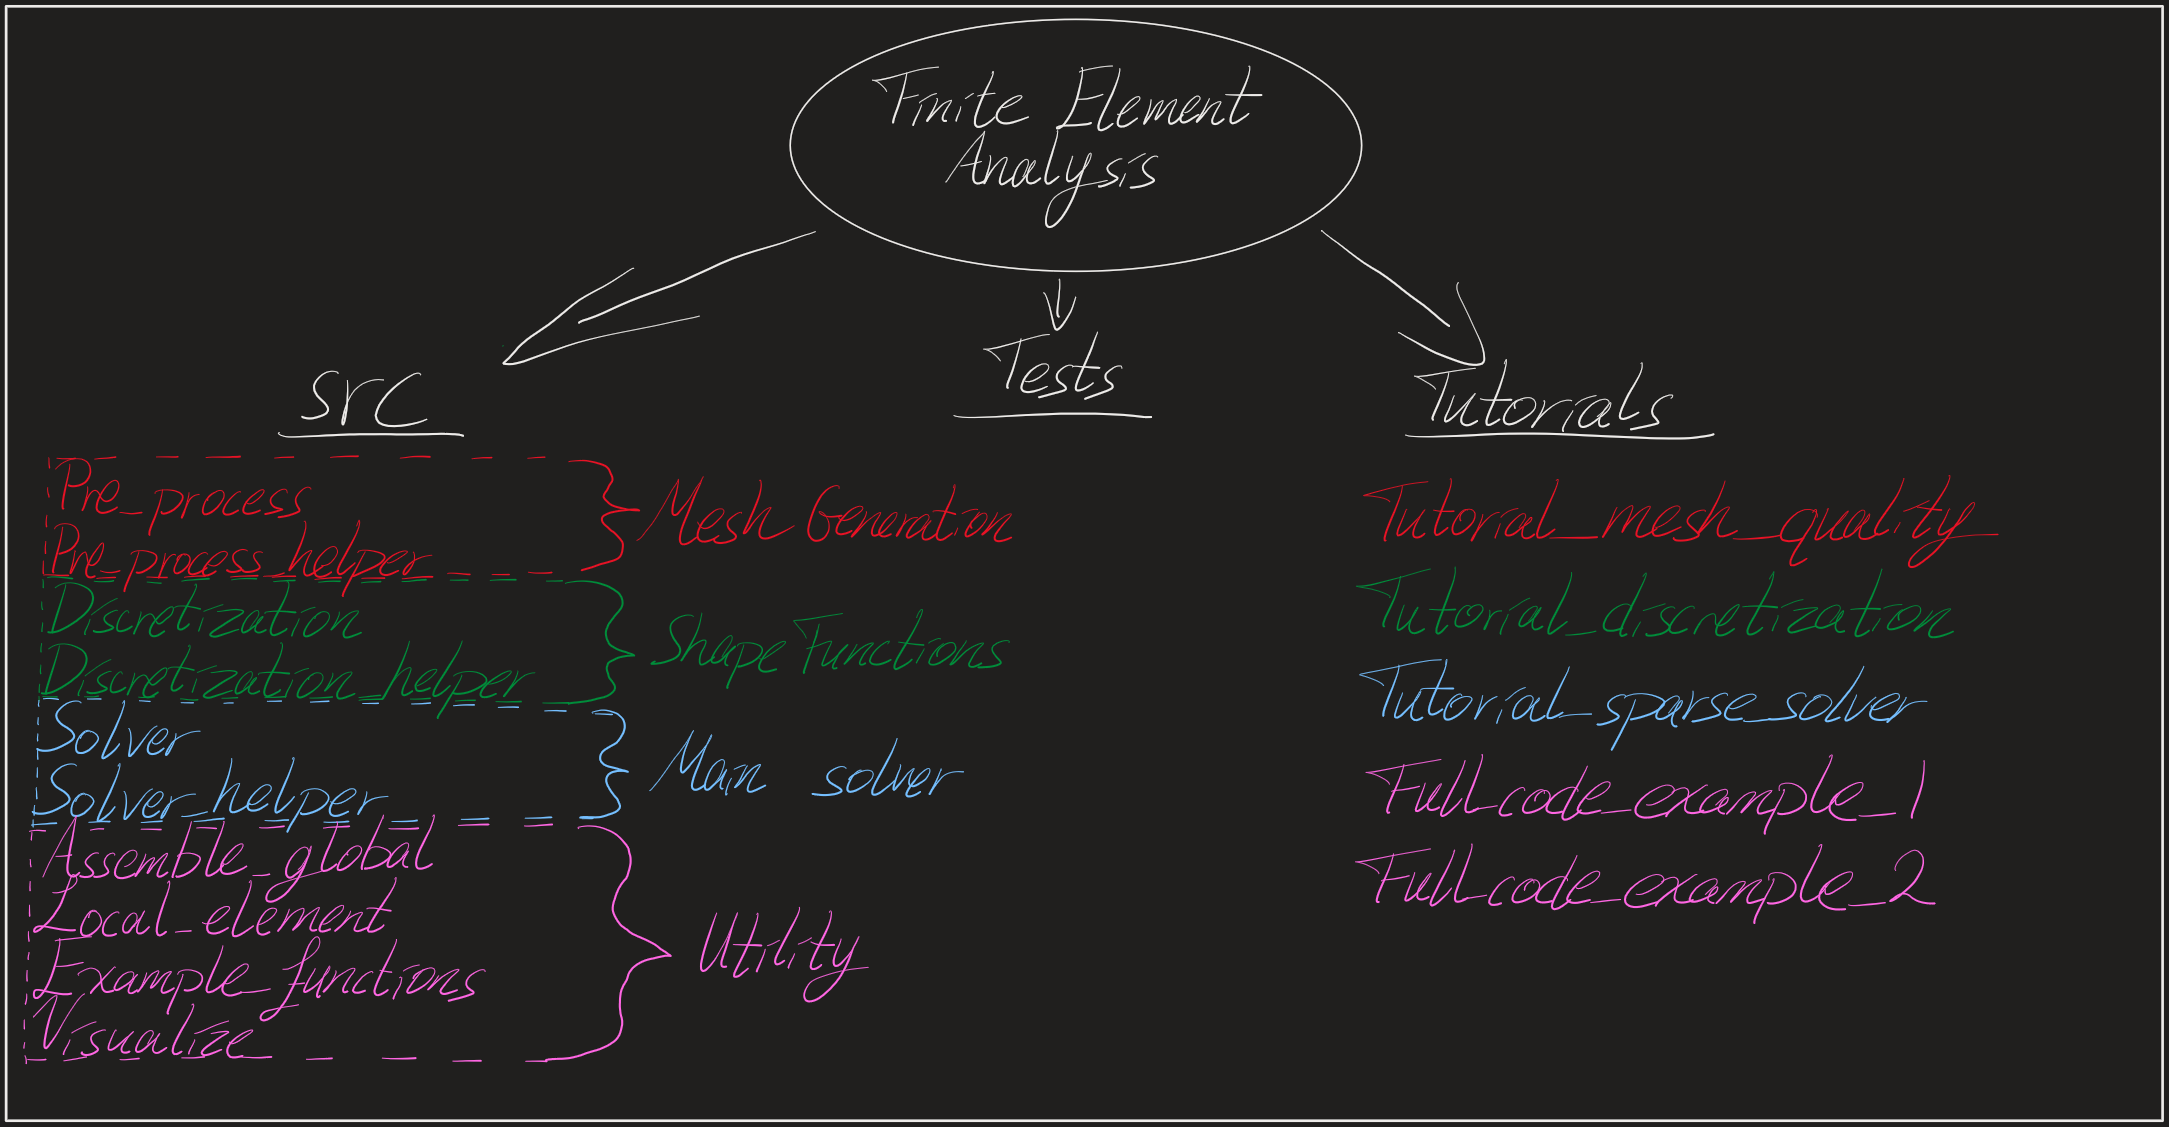 Finite Element
Analysis
src
Pre_process
Pre_process_helper
Mesh Generation
Discretization
Discretization_helper
Shape Functions
Solver
Solver_helper
Main solver
Assemble_global
Local_element
Example_functions
Visualize
Utility
Tests
Tutorials
Tutorial_mesh_quality
Tutorial_discretization
Tutorial_sparse_solver
Full_code_example_1
Full_code_example_2